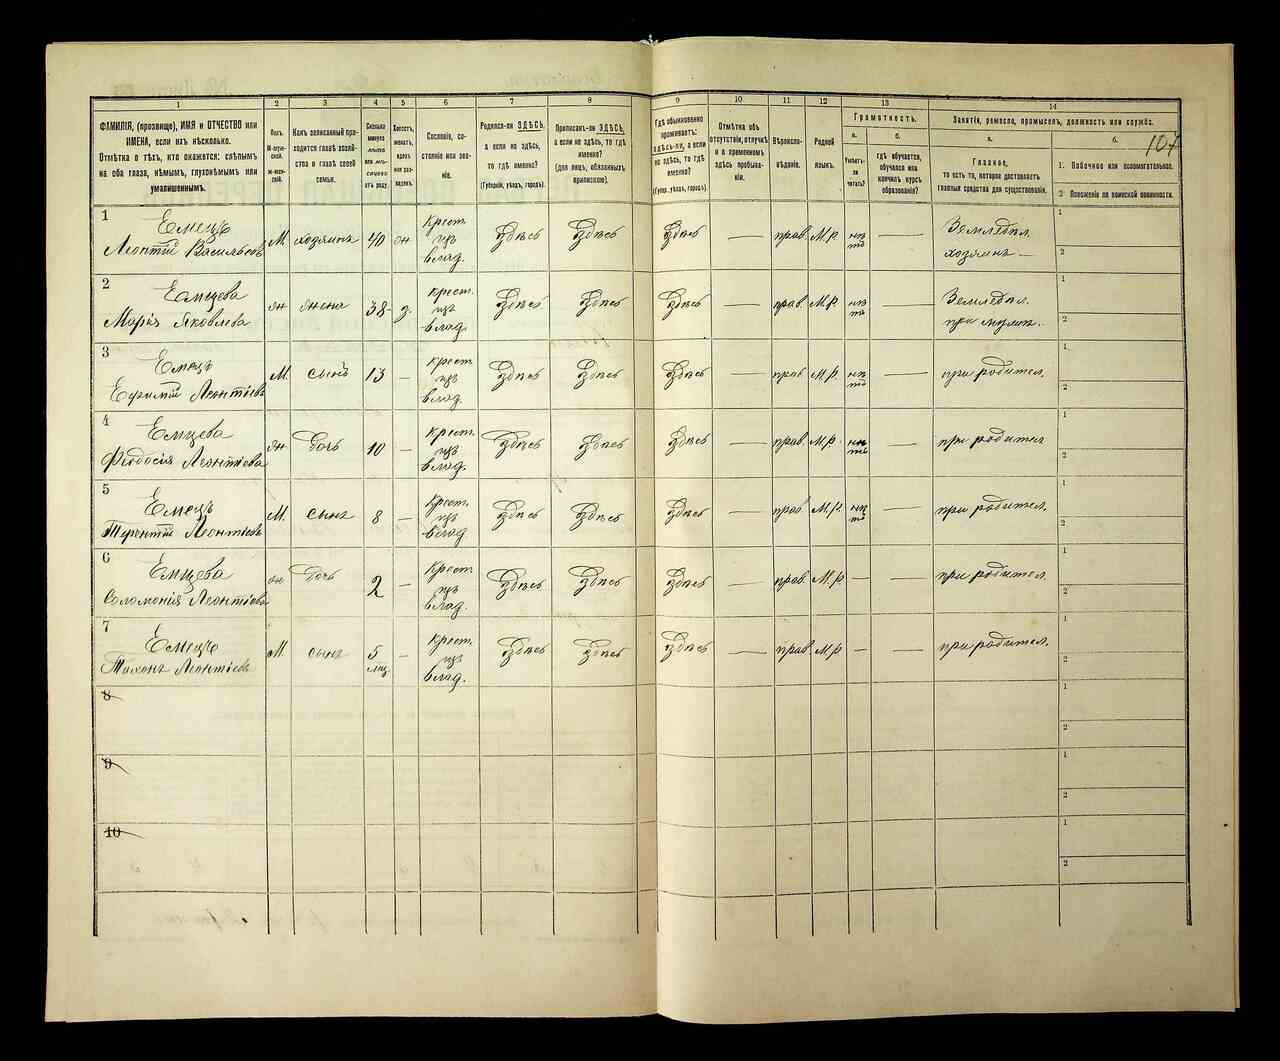 107
1 2 3 4 5 6 7 8 9 10 11 12 13 14
ФАМИЛІЯ, (прозвище), ИМЯ и ОТЧЕСТВО или
ИМЕНА, если ихъ нѣсколько.
Отмѣтка о тѣхъ, кто окажется: слѣпымъ
на оба глаза, нѣмымъ, глухонѣмымъ или
умалишеннымъ.
Полъ.
М-мужской.
Ж-женскій.
Какъ записанный приходится главѣ хозяйства и главѣ своей семьи.
Сколько минуло лѣтъ или мѣсяцевъ отъ роду.
Холостъ, женатъ, вдовъ или разведенъ.
Сословіе, состояніе или званіе.
Родился-ли ЗДѢСЬ,
а если не здѣсь,
то гдѣ именно?
(Губернія, уѣздъ, городъ).
Приписанъ-ли ЗДѢСЬ,
а если не здѣсь, то гдѣ
именно?
(Для лицъ, обязанныхъ
припискою).
Гдѣ обыкновенно
проживаетъ:
ЗДѢСЬ-ли, а если
не здѣсь, то гдѣ
именно?
(Губерн., уѣздъ, городъ).
Отмѣтка объ
отсутствіи, отлучкѣ
и о временномъ
здѣсь пребываніи.
Вѣроисповѣданіе.
Родной
языкъ.
Грамотность.
а. б.
Умѣетъ-ли читать?
гдѣ обучается,
обучался или
кончилъ курсъ
образованія?
Занятіе, ремесло, промыселъ, должность или служба.
а. б.
Главное,
то есть то, которое доставляетъ
главныя средства для существованія.
1. Побочное или вспомогательное.
2 Положеніе по воинской повинности.
1 Емецъ
Леонтій Васильевъ М. хозяинъ 40 Крест. изъ влад. Здѣсь Здѣсь Здѣсь — прав. М.р. нѣтъ — Земледѣл. хозяинъ — 1 2
2 Емцева
Марія Яковлева жена 38 Крест. изъ влад. Здѣсь Здѣсь Здѣсь — прав. М.р. нѣтъ — Земледѣл. 1 2
3 Емецъ
Ефимій Леонтіевъ М. сынъ 13 — Крест. изъ влад. Здѣсь Здѣсь Здѣсь — прав. М.р. нѣтъ — при родител. 1 2
4 Емцева
Феодосія Леонтіева дочь 10 — Крест. изъ влад. Здѣсь Здѣсь Здѣсь — прав. М.р. нѣтъ — при родител 1 2
5 Емецъ
Терентій Леонтіевъ М. сынъ 8 — Крест. изъ влад. Здѣсь Здѣсь Здѣсь — прав М.р. нѣтъ — при родител. 1 2
6 Емцева
Соломонія Леонтіева дочь 2 — Крест изъ влад. Здѣсь Здѣсь Здѣсь — прав. М.р — — при родител. 1 2
7 Емецъ
Тихонъ Леонтіевъ М сынъ 5 мѣс — Крест. изъ влад. Здѣсь Здѣсь Здѣсь — прав М.р — — при родител. 1 2
8 1 2
9 1 2
10 1 2